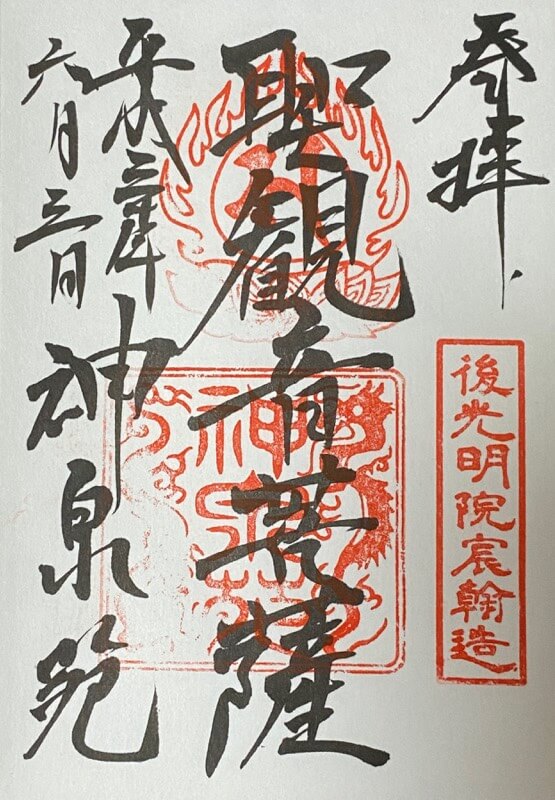 奉拝
後光明院宸翰造
聖観音菩薩
神泉苑
平成三十年
六月三日
神泉苑